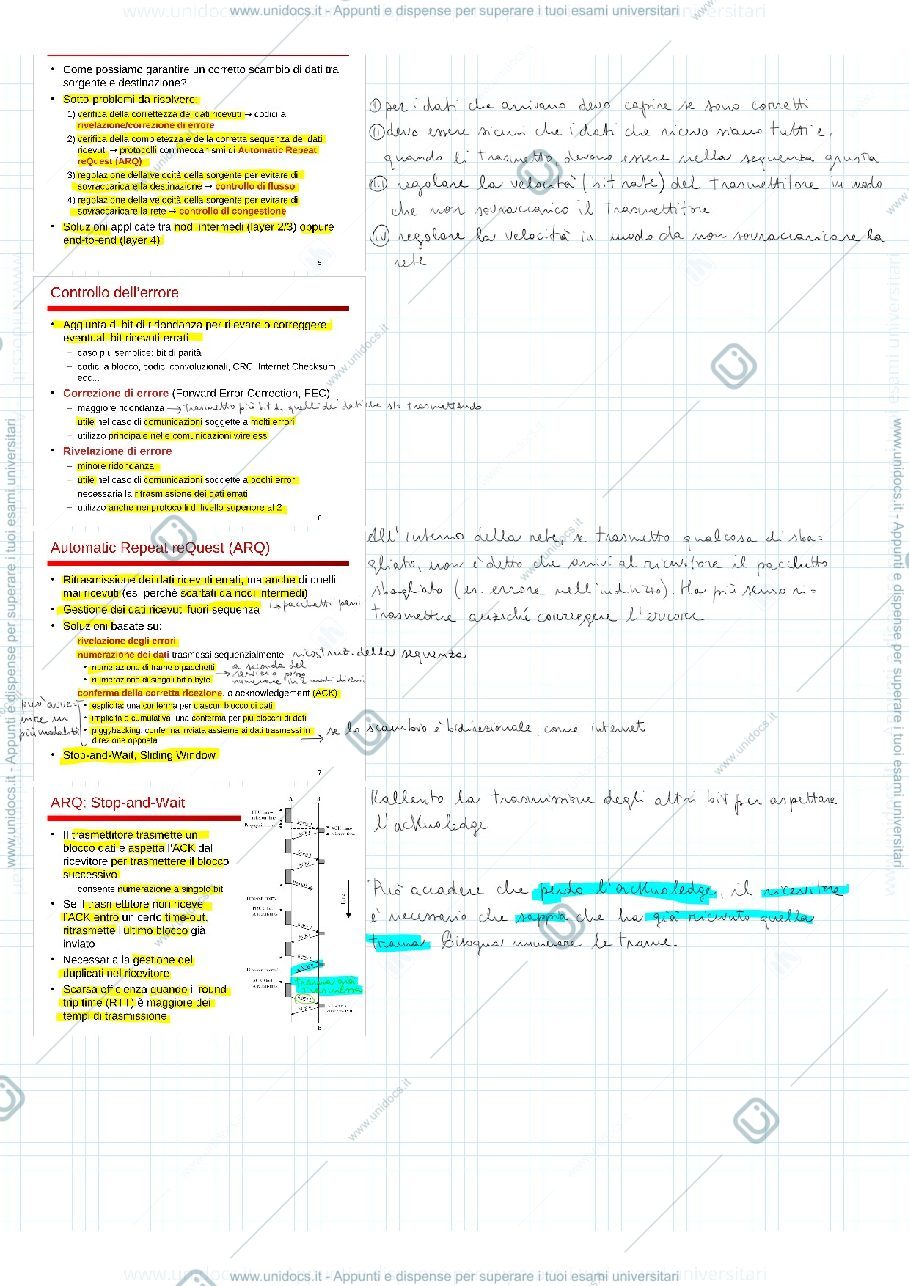 www.unidocs.it - Appunti e dispense per superare i tuoi esami universitari
• Come possiamo garantire un corretto scambio di dati tra
sorgente e destinazione?
• Sotto-problemi da risolvere:
1) verifica della correttezza dei dati ricevuti → codici a
rivelazione/correzione di errore
2) verifica della completezza e della corretta sequenza dei dati
ricevuti → protocolli con meccanismi di Automatic Repeat
reQuest (ARQ)
3) regolazione della velocità della sorgente per evitare di
sovraccaricare la destinazione → controllo di flusso
4) regolazione della velocità della sorgente per evitare di
sovraccaricare la rete → controllo di congestione
• Soluzioni applicate tra nodi intermedi (layer 2/3) oppure
end-to-end (layer 4)
5
I per i dati che arrivano devo capire se sono corretti
II devo essere sicuro che i dati che ricevo siano tutti e,
quando li trasmetto devono essere nella sequenza giusta
III regolare la velocità (bit rate) del trasmettitore in modo
che non sovraccarico il trasmettitore
IV regolare la velocità in modo da non sovraccaricare la
rete
Controllo dell'errore
• Aggiunta di bit di ridondanza per rilevare o correggere
eventuali bit ricevuti errati
– caso più semplice: bit di parità
– codici a blocco, codici convoluzionali, CRC, Internet Checksum
ecc...
• Correzione di errore (Forward Error Correction, FEC)
– maggiore ridondanza → trasmetto più bit di quelli dei dati che sto trasmettendo
– utile nel caso di comunicazioni soggette a molti errori
– utilizzo principale nelle comunicazioni wireless
• Rivelazione di errore
– minore ridondanza
– utile nel caso di comunicazioni soggette a pochi errori
necessaria la ritrasmissione dei dati errati
– utilizzo anche nei protocolli di livello superiore al 2
6
Automatic Repeat reQuest (ARQ)
• Ritrasmissione dei dati ricevuti errati, ma anche di quelli
mai ricevuti (es. perché scartati da nodi intermedi)
• Gestione dei dati ricevuti fuori sequenza
↳ pacchetto persi
• Soluzioni basate su:
rivelazione degli errori
numerazione dei dati trasmessi sequenzialmente ricostruz. della sequenza
• numerazione di frame o pacchetti
• numerazione di singoli bit o byte
→ a seconda del
servizio posso
numerare in 2 modi diversi
conferma della corretta ricezione, o acknowledgement (ACK)
• esplicita: una conferma per ciascun blocco di dati
• implicita o cumulativa: una conferma per più blocchi di dati
• piggybacking: conferma inviata assieme ai dati trasmessi in
direzione opposta → se lo scambio è bidirezionale come internet
può avve-
nire in
più modalità
• Stop-and-Wait, Sliding Window
7
All'interno della rete, se trasmetto qualcosa di sba-
gliato, non è detto che arrivi al ricevitore il pacchetto
sbagliato (es. errore nell'indirizzo). Ha più senso ri-
trasmettere anziché correggere l'errore
ARQ: Stop-and-Wait
• Il trasmettitore trasmette un
blocco dati e aspetta l'ACK dal
ricevitore per trasmettere il blocco
successivo
consente numerazione a singolo bit
• Se il trasmettitore non riceve
l'ACK entro un certo time-out,
ritrasmette l'ultimo blocco già
inviato
• Necessaria la gestione dei
duplicati nel ricevitore
• Scarsa efficienza quando il round
trip time (RTT) è maggiore dei
tempi di trasmissione
A
B
Time
trama già
Rallento la trasmissione degli altri bit per aspettare
l'acknoledge
Può accadere che perdo l'acknoledge, il ricevitore
è necessario che sappia che ha già ricevuto quella
trama. Bisogna numerare le trame.
www.unidocs.it - Appunti e dispense per superare i tuoi esami universitari